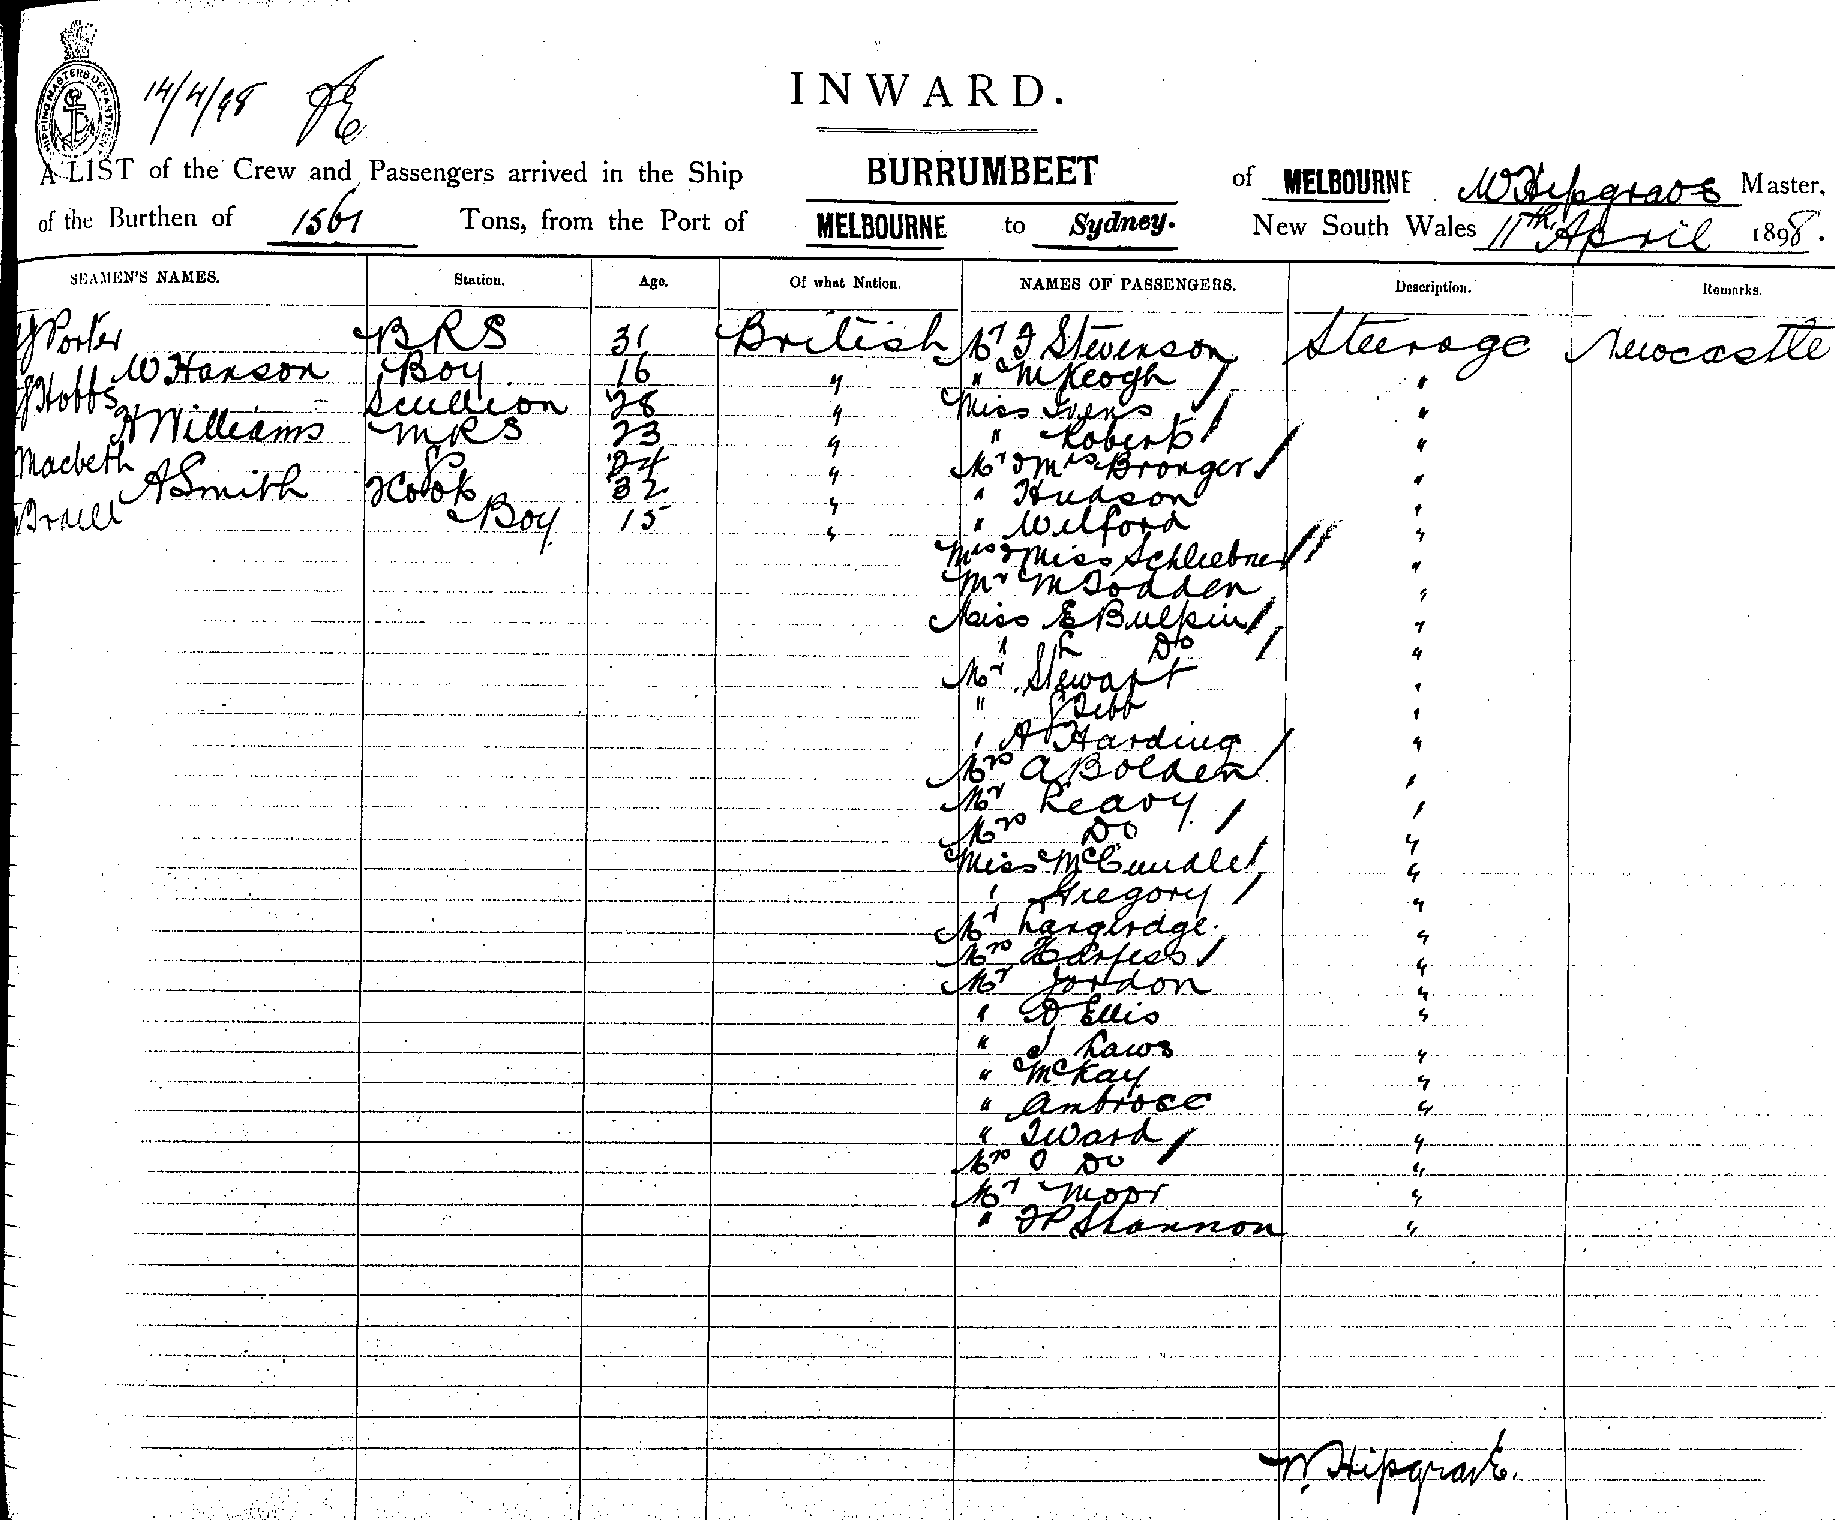 SHIPPING MASTERS DEPARTMENT
14/4/98
INWARD.
A LIST of the Crew and Passengers arrived in the Ship BURRUMBEET of MELBOURNE W Hipgrave Master,
of the Burthen of 1561 Tons, from the Port of MELBOURNE to Sydney. New South Wales 11th April 1898.
SEAMEN'S NAMES. Station. Age. Of what Nation. NAMES OF PASSENGERS. Description. Remarks.
J Porter BRS 31 British Mr J Stevenson Steerage Newcastle
W Hanson Boy 16 " " McKeogh / "
J Hobbs Scullion 28 " Miss Ivens / "
H Williams MRS 23 " " Roberts / "
Macbeth 24 " Mr & Mrs Bronger / "
A Smith Cook 32 " " Hudson "
Braill Boy 15 " " Wilford "
Mrs & Miss Schliebner // "
Mr McFodden "
Miss E Bulpin / "
" Do / "
Mr Stewart "
" Gibb "
" A Harding / "
Mrs A Bolden "
Mr Leavy / "
Mrs Do "
Miss McCundle / "
" Gregory / "
Mr Langerdge "
Mrs / "
Mr Jordon "
" D Ellis "
" J Laws "
" McKay "
" Ambrose "
" J Ward / "
Mrs Do "
Mr Moor "
" J P Shannon "
W. Hipgrave.